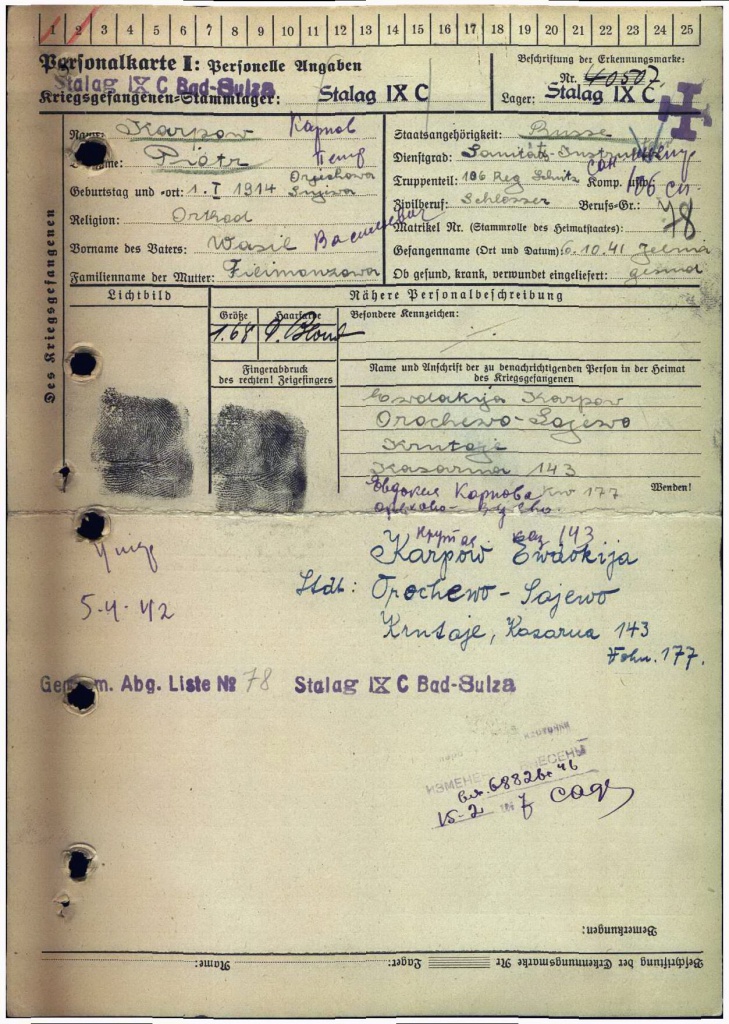 1 2 3 4 5 6 7 8 9 10 11 12 13 14 15 16 17 18 19 20 21 22 23 24 25
Personalkarte I: Personelle Angaben
Stalag IX C Bad-Sulza
Kriegsgefangenen=Stammlager: Stalag IX C
Beschriftung der Erkennungsmarke:
Nr. 40507
Lager: Stalag IX C
Des Kriegsgefangenen
Name: Karpow Карпов
Piotr Петр
Geburtstag und =ort: 1. I 1914
Religion:
Vorname des Vaters: Wasil Василевич
Familienname der Mutter: Filimanzowa
Staatsangehörigkeit: Russe
Dienstgrad: Sanitäts-
Truppenteil: 106 Reg Schütz Komp. usw. 106 сп.
Zivilberuf: Schlosser Berufs-Gr.: 78
Matrikel Nr. (Stammrolle des Heimatstaates):
Gefangenname (Ort und Datum): 6.10.41 Jelnia
Ob gesund, krank, verwundet eingeliefert: gesund
Lichtbild
Nähere Personalbeschreibung
Größe Haarfarbe Besondere Kennzeichen:
1.68 d. Blond
Fingerabdruck
des rechten! Zeigefingers
Name und Anschrift der zu benachrichtigenden Person in der Heimat
des Kriegsgefangenen
Ewdakija Karpow
Orochewo-Sajewo
Krutaje
Kasarma 143
Wenden!
Евдокия Карпова kw 177
Орехово-
Крутая каз 143
Karpow Ewdokija
Stdt: Orochewo-Sajewo
Krutaje, Kasarna 143
177.
5.4.42
Gekom. Abg. Liste № 78 Stalag IX C Bad-Sulza
ИЗМЕНЕ ВНЕСЕНЫ
15-2
Bemerkungen:
Beschriftung der Erkennungsmarke Nr Lager: Name: